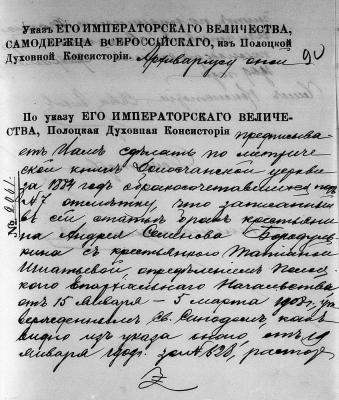 Указъ ЕГО ИМПЕРАТОРСКАГО ВЕЛИЧЕСТВА,
САМОДЕРЖЦА ВСЕРОССІЙСКАГО, изъ Полоцкой
Духовной Консисторіи. Архиваріусу оной
90
По указу ЕГО ИМПЕРАТОРСКАГО ВЕЛИЧЕ-
СТВА, Полоцкая Духовная Консисторія предписыва-
етъ Вамъ сдѣлать по метриче-
ской книгѣ церкви
за 1884 годъ о бракосочетавшихся подъ
№7 отмѣтку, что записанный
въ сей статьѣ бракъ крестьяни-
на Андрея Семенова
съ крестьянкою Татьяною
Игнатьевой, опредѣленіемъ Полоц-
каго Епархіальнаго Начальства
отъ 15 января – 5 марта 1908 г., ут-
вержденнымъ Св. Синодомъ, какъ
видно изъ указа онаго, отъ 19
января 1909 г. за № 828, расторг
№